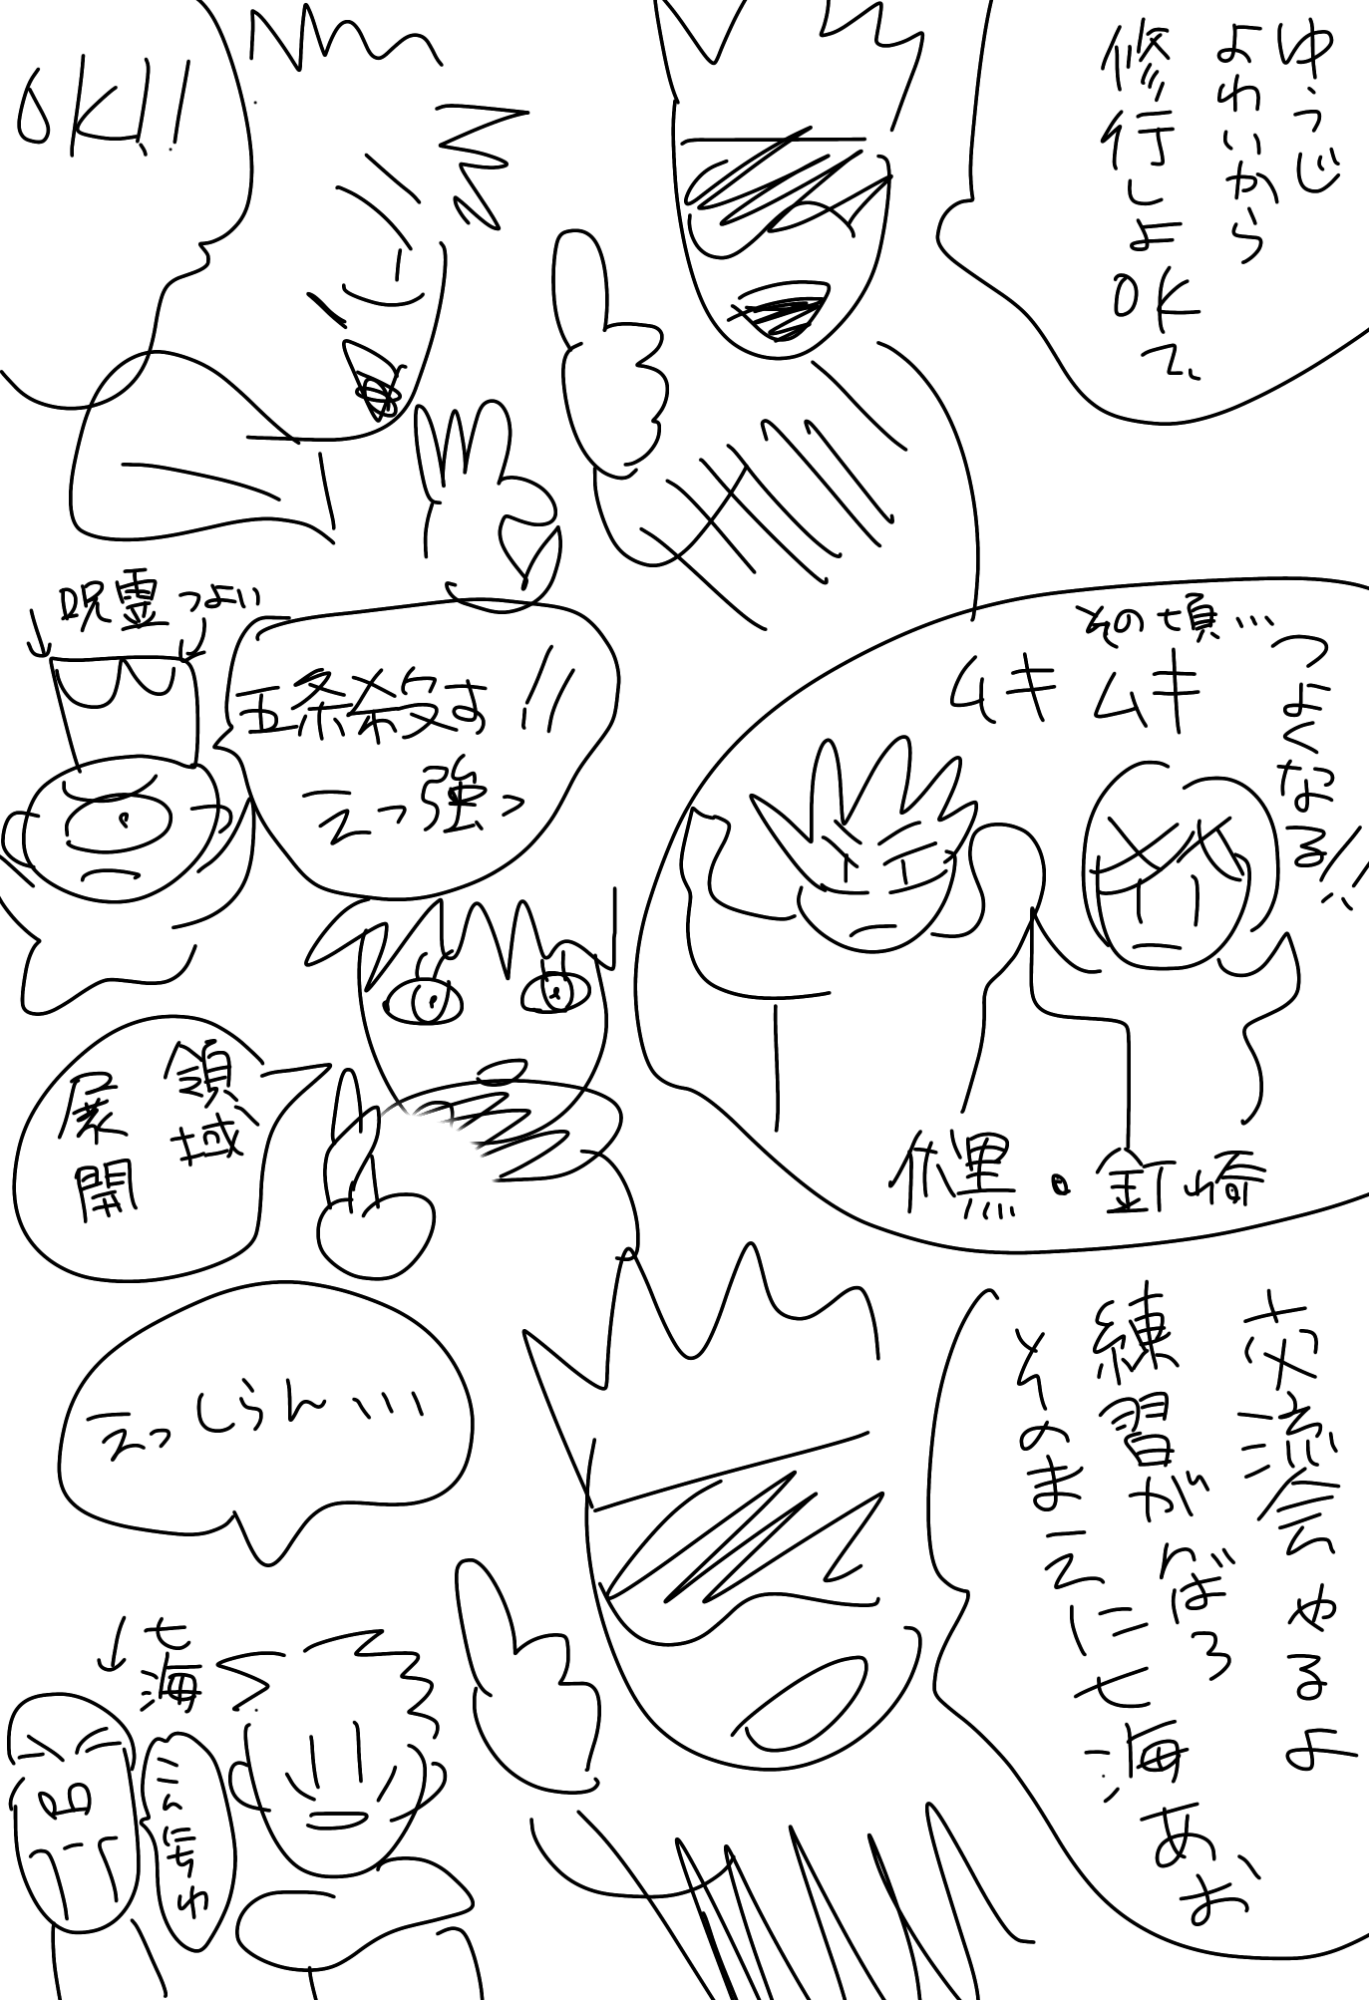 ゆうじ
よわいから
修行しよ
OK?
OK!!
その頃…
つよくなる!!
ムキムキ
伏黒・釘崎
呪霊つよい
五条殺す!!
えっ強っ
領域
展開
交流会やるよ
練習がんばろ
そのまえに七海あお
えっしらん…
七海
こんにちわ